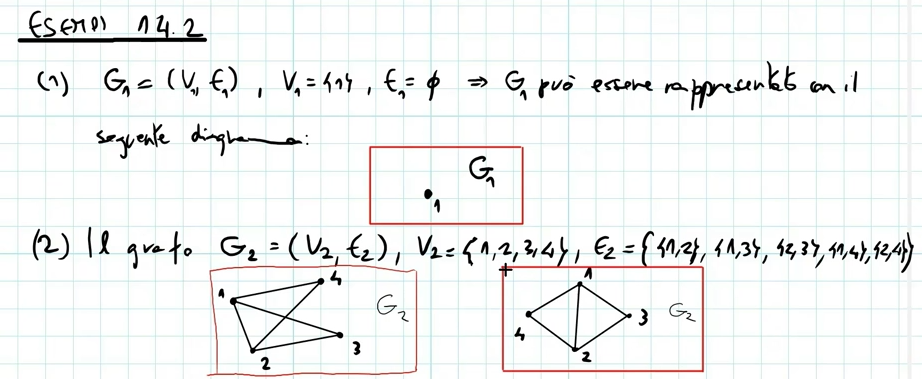 ESEMPI 14.2
(1) G₁ = (V₁, E₁), V₁ = {1}, E₁ = ∅ ⇒ G₁ può essere rappresentato con il
seguente diagramma:
G₁
1
(2) Il grafo G₂ = (V₂, E₂), V₂ = {1,2,3,4}, E₂ = {{1,2}, {1,3}, {2,3}, {1,4}, {2,4}}
1 4 G₂ 3 2
1 4 3 G₂ 2